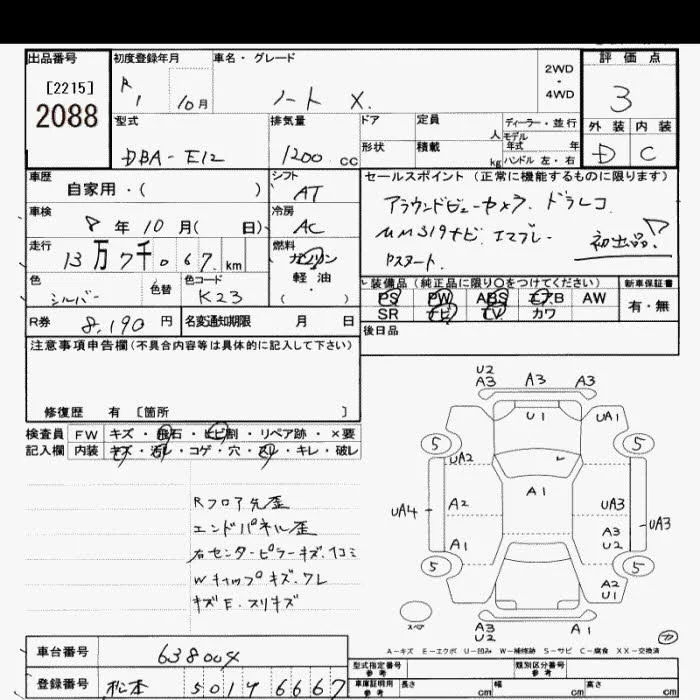 出品番号 初度登録年月 車名・グレード 2WD・4WD 評価点
[2215] 2088 R1 10月 ノート X. 3
型式 排気量 ドア 定員 人 ディーラー・並行 外装 内装
DBA-E12 1200 cc 形状 積載 kg モデル年式 年 ハンドル 左・右 D C
車歴 シフト セールスポイント (正常に機能するものに限ります)
自家用・( ) AT アラウンドビューカメラ. ドラレコ
車検 冷房
8年 10月( 日) AC MM319ナビ. エマブレ 初出品!
走行 燃料 Pスタート.
13万7千067km ガソリン 軽・油 ( )
色 色替 色コード 装備品 (純正品に限り○をつけてください) 新車保証書
シルバー K23 PS PW ABS エアB AW 有・無
SR ナビ TV カワ
R券 8,190円 名変通知期限 月 日 後日品
注意事項申告欄(不具合内容等は具体的に記入して下さい)
修復歴 有 [箇所 ]
検査員 FW キズ・飛石・ヒビ割・リペア跡・×要
記入欄 内装 キズ・汚レ・コゲ・穴・スレ・キレ・破レ
Rフロア先歪
エンドパネル歪
右センターピラーキズ.凹ミ
Wキャップキズ.ワレ
キズE.スリキズ
U2
A3 A3 A3
U1 UA1
5 5
UA2
A1
UA4 A2 UA3 UA3
A1 A3
U2
5 5
A2
U1
スペア
A3 A1
U2
A-キズ E-エクボ U-凹み W-補修跡 S-サビ C-腐食 XX-交換済
車台番号 638004 型式指定番号 参考 類別区分番号 参考
登録番号 松本 501 サ 6667 車庫証明用 参考 長さ cm 幅 cm 高さ cm